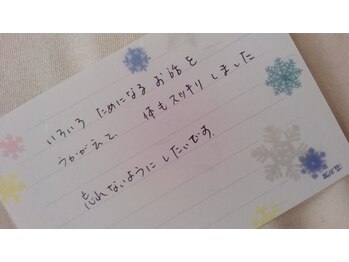 いろいろ ためになる お話を
うかがえて、 体もスッキリ しました
忘れないように したいです。